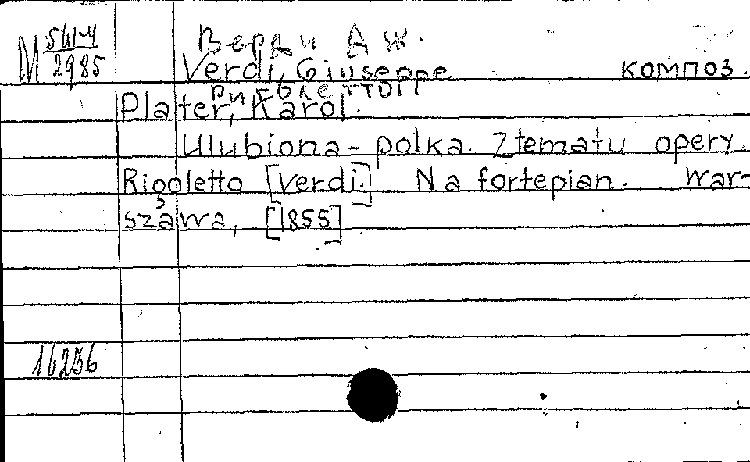 М 541-4
2985
Верди Дж.
Verdi, Giuseppe композ.
Риголетто
Plater, Karol.
Ulubiona-polka. Z tematu opery
Rigoletto [Verdi.] Na fortepian. War-
szawa, [1855]
16256